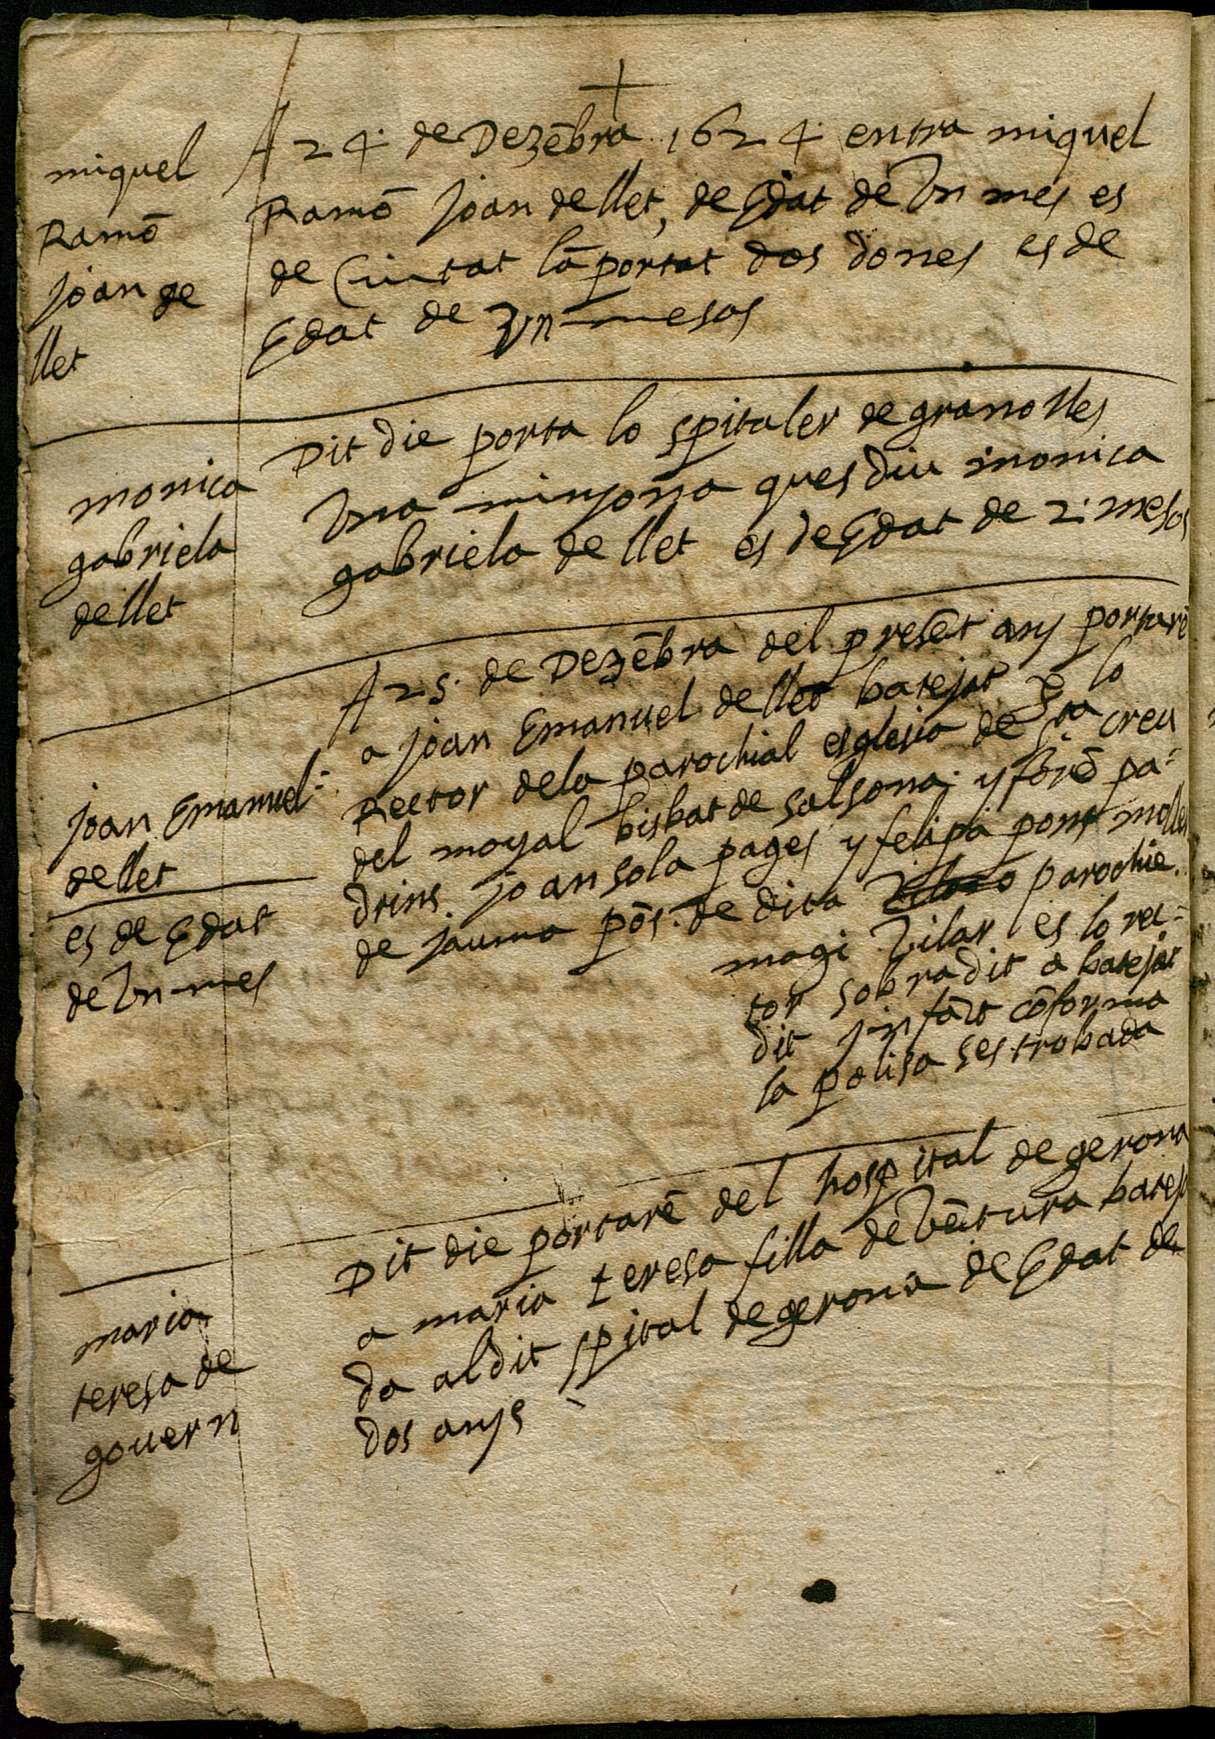 miquel
Ramõ
joan de
llet
A 24 de Dezẽbra 1624 entra miquel
Ramõ joan de llet, de Edat de Vn mes es
de Ciutat lã portat dos dones es de
Edat de Vn mesos
monica
gabriela
de llet
Dit die porta lo spitaler de granolles
Vna minyona ques diu monica
gabriela de llet es de Edat de 2 mesos
joan Emanuel
de llet
es de Edat
de Vn mes
A 25 de Dezẽbra del presẽt any portarẽ
a joan Emanuel de llet batejat p lo
Rector de la parochial esglesia de Sta creu
del moyal bisbat de salsona y forẽ pa=
drins joan sola pages y felipa pons moller
de jauma põs de dita parochie
magi Vilar es lo rec=
tor sobradit a batejat
dit jnfãt cõforma
la polisa ses trobada
maria
teresa de
gouern
Dit die portarẽ del hospital de gerona
a maria teresa filla de Vẽtura bateja
da al dit spital de gerona de Edat de
dos anys